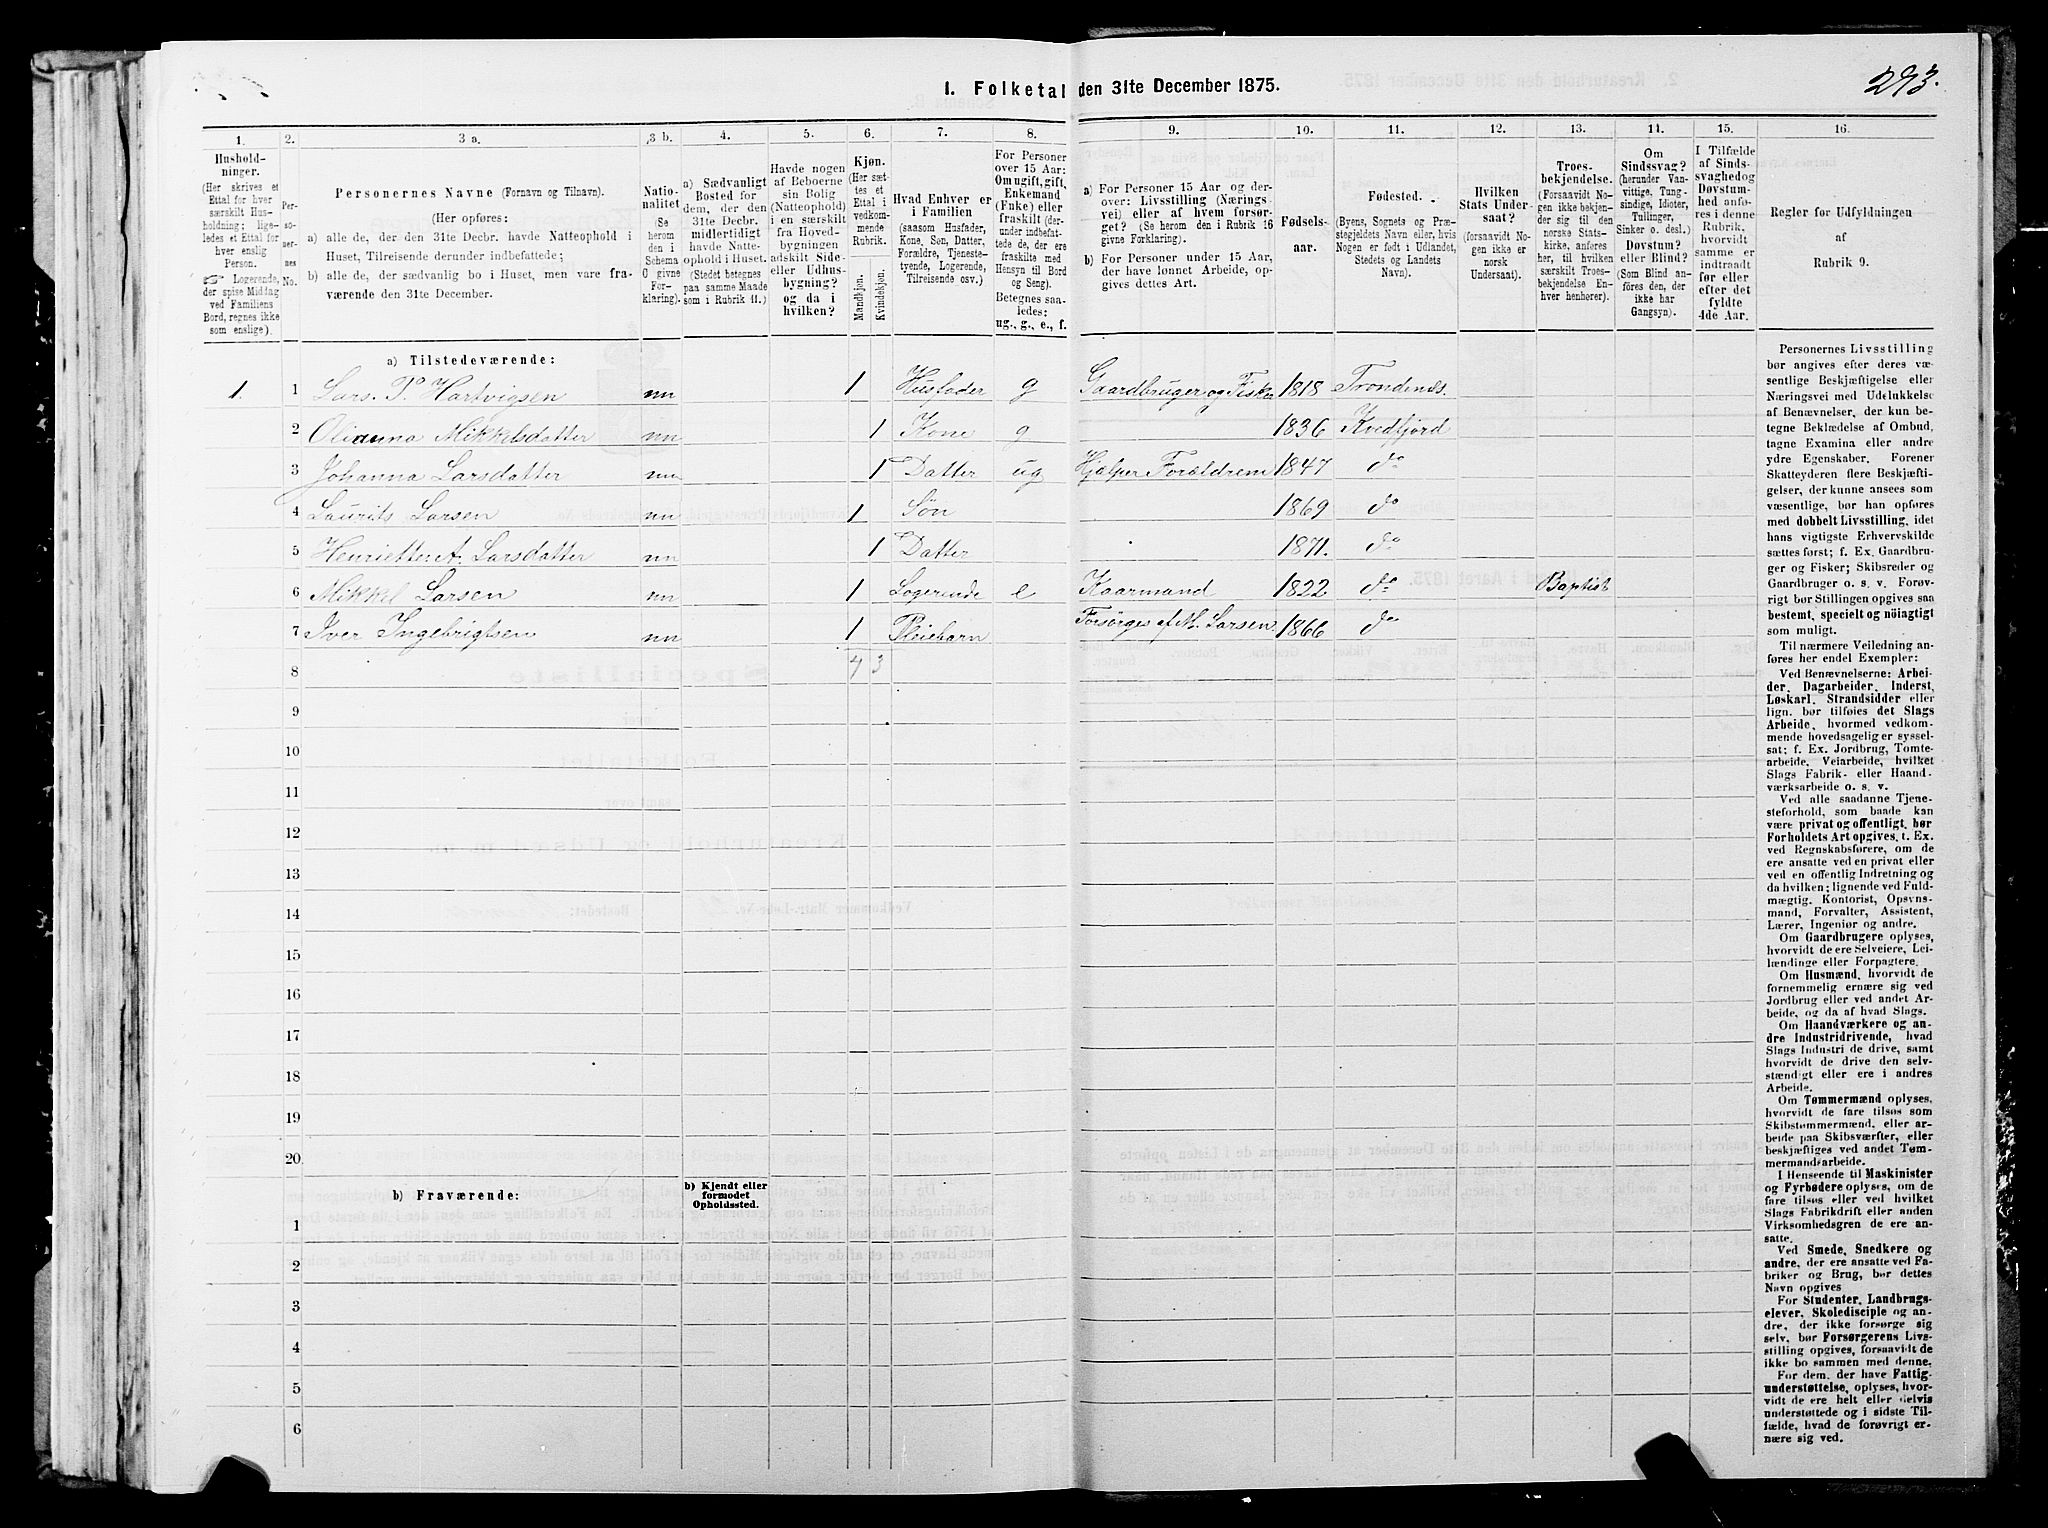 I. Folketal den 31te December 1875.
293.
1. 2. 3 a. 3 b. 4. 5. 6. 7. 8. 9. 10. 11. 12. 13. 14. 15. 16.
Hushold-
ninger.
(Her skrives et
Ettal for hver
særskilt Hus-
holdning; lige-
ledes et Ettal for
hver enslig
Person.
☞ Logerende,
der spise Middag
ved Familiens
Bord, regnes ikke
som enslige).
Per-
so-
ner-
nes
No.
Personernes Navne (Fornavn og Tilnavn).
(Her opføres:
a) alle de, der den 31te Decbr. havde Natteophold i
Huset, Tilreisende derunder indbefattede;
b) alle de, der sædvanlig bo i Huset, men vare fra-
værende den 31te December.
Natio-
nalitet
Se
herom
den i
Schema
C givne
For-
klaring).
a) Sædvanligt
Bosted for
dem, der den
31te Decbr.
midlertidigt
havde Natte-
ophold i Huset.
(Stedet betegnes
paa samme Maade
som i Rubrik 11.)
Havde nogen
af Beboerne
sin Bolig
(Natteophold)
i en særskilt
fra Hoved-
bygningen
adskilt Side-
eller Udhus-
bygning?
og da i
hvilken?
Kjøn.
(Her sæt-
tes et
Ettal i
vedkom-
mende
Rubrik.
Mandkjøn.
Kvindekjøn.
Hvad Enhver er
i Familien
(saasom Husfader,
Kone, Søn, Datter,
Forældre, Tjeneste-
tyende, Logerende,
Tilreisende osv.)
For Personer
over 15 Aar:
Om ugift, gift,
Enkemand
(Enke) eller
fraskilt (der-
under indbefat-
tede de, der ere
fraskilte med
Hensyn til Bord
og Seng).
Betegnes saa-
ledes:
ug., g., e., f.
a) For Personer 15 Aar og der-
over: Livsstilling (Nærings-
vei) eller af hvem forsør-
get? (Se herom den i Rubrik 16
givne Forklaring).
b) For Personer under 15 Aar,
der have lønnet Arbeide, op-
gives dettes Art.
Fødsels-
aar.
Fødested.
(Byens, Sognets og Præ-
stegjeldets Navn eller, hvis
Nogen er født i Udlandet,
Stedets og Landets
Navn).
Hvilken
Stats Under-
saat?
(forsaavidt No-
gen ikke er
norsk
Undersaat).
Troes-
bekjendelse.
(Forsaavidt No-
gen ikke bekjen-
der sig til den
norske Stats-
kirke, anføres
her, til hvilken
særskilt Troes-
bekjendelse En-
hver henhører).
Om
Sindssvag?
(herunder Van-
vittige, Tung-
sindige, Idioter,
Tullinger,
Sinker o. desl.)
Døvstum?
eller Blind?
(Som Blind an-
føres den, der
ikke har
Gangsyn).
I Tilfælde
af Sinds-
svaghed og
Døvstum-
hed anfø-
res i denne
Rubrik,
hvorvidt
samme er
indtraadt
før eller
efter det
fyldte
4de Aar.
Regler for Udfyldningen
af
Rubrik 9.
a) Tilstedeværende:
1. 1 Lars. P. Hartvigsen nn 1 Husfader g Gaardbruger og Fisker 1818 Trondenæs.
2 Olianna Mikkelsdatter nn 1 Kone g 1836 Kvedfjord
3 Johanna Larsdatter nn 1 Datter ug Hjælper Forældrene 1847 do
4 Laurits Larsen nn 1 Søn 1869 do
5 Henriette A. Larsdatter nn 1 Datter 1871. do
6 Mikkel Larsen nn 1 Logerende e Kaarmand 1822 do Baptist
7 Iver Ingebrigtsen nn 1 Pleiebarn Forsørges af M. Larsen. 1866 do
8 4 3
9
10
11
12
13
14
15
16
17
18
19
20.
b) Fraværende:
b) Kjendt eller
formodet
Opholdssted.
1
2
3
4
5
6
Personernes Livsstilling
bør angives efter deres væ-
sentlige Beskjæftigelse eller
Næringsvei med Udelukkelse
af Benævnelser, der kun be-
tegne Beklædelse af Ombud,
tagne Examina eller andre
ydre Egenskaber. Forener
Skatteyderen flere Beskjæfti-
gelser, der kunne ansees som
væsentlige, bør han opføres
med dobbelt Livsstilling, idet
hans vigtigste Erhvervskilde
sættes først; f. Ex. Gaardbru-
ger og Fisker; Skibsreder og
Gaardbruger o. s. v. Forøv-
rigt bør Stillingen opgives saa
bestemt, specielt og nøiagtigt
som muligt.
Til nærmere Veiledning an-
føres her endel Exempler:
Ved Benævnelserne: Arbei-
der, Dagarbeider, Inderst,
Løskarl, Strandsidder eller
lign. bør tilføies det Slags
Arbeide, hvormed vedkom-
mende hovedsagelig er syssel-
sat; f. Ex. Jordbrug, Tomte-
arbeide, Veiarbeide, hvilket
Slags Fabrik- eller Haand-
værksarbeide o. s. v.
Ved alle saadanne Tjene-
steforhold, som baade kan
være privat og offentligt, bør
Forholdets Art opgives, t. Ex.
ved Regnskabsførere, om de
ere ansatte ved en privat eller
ved en offentlig Indretning og
da hvilken; lignende ved Fuld-
mægtig, Kontorist, Opsyns-
mand, Forvalter, Assistent,
Lærer, Ingeniør og andre.
Om Gaardbrugere oplyses,
hvorvidt de ere Selveiere, Lei-
lændinge eller Forpagtere.
Om Husmænd, hvorvidt de
fornemmelig ernære sig ved
Jordbrug eller ved andet Ar-
beide, og da af hvad Slags.
Om Haandværkere og an-
dre Industridrivende, hvad
Slags Industri de drive, samt
hvorvidt de drive den selv-
stændigt eller ere i andres
Arbeide.
Om Tømmermænd oplyses,
hvorvidt de fare tilsøs som
Skibstømmermænd, eller ar-
beide paa Skibsværfter, eller
beskjæftiges ved andet Tøm-
mermandsarbeide.
I Henseende til Maskinister
og Fyrbødere oplyses, om de
fare tilsøs eller ved hvilket
Slags Fabrikdrift eller anden
Virksomhedsgren de ere an-
satte.
Ved Smede, Snedkere og
andre, der ere ansatte ved Fa-
briker og Brug, bør dettes
Navn opgives
For Studenter, Landbrugs-
elever, Skoledisciple og an-
dre, der ikke forsørge sig
selv, bør Forsørgerens Livs-
stilling opgives, forsaavidt de
ikke bo sammen med denne.
For dem, der have Fattig-
understøttelse, oplyses, hvor-
vidt de ere helt eller delvis
understøttede og i sidste Til-
fælde, hvad de forøvrigt er-
nære sig ved.